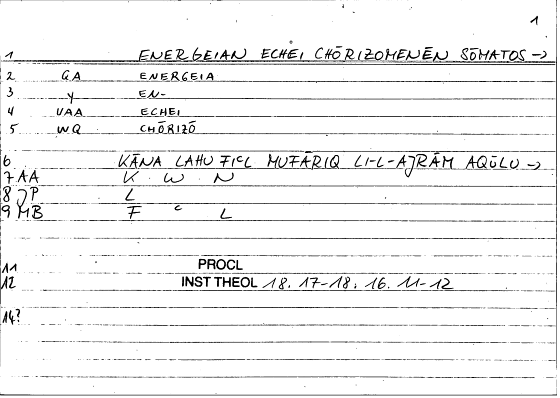 1
1 ENERGEIAN ECHEI CHŌRIZOMENĒN SŌMATOS →
2 GA ENERGEIA
3 y EN-
4 VAA ECHEI
5 WQ CHŌRIZŌ
6 KĀNA LAHU FIᶜL MUFĀRIQ LI-L-AJRĀM AQŪLU →
7 AA K W N
8 JP L
9 MB F ᶜ L
11 PROCL
12 INST THEOL 18.17-18; 16.11-12
14?